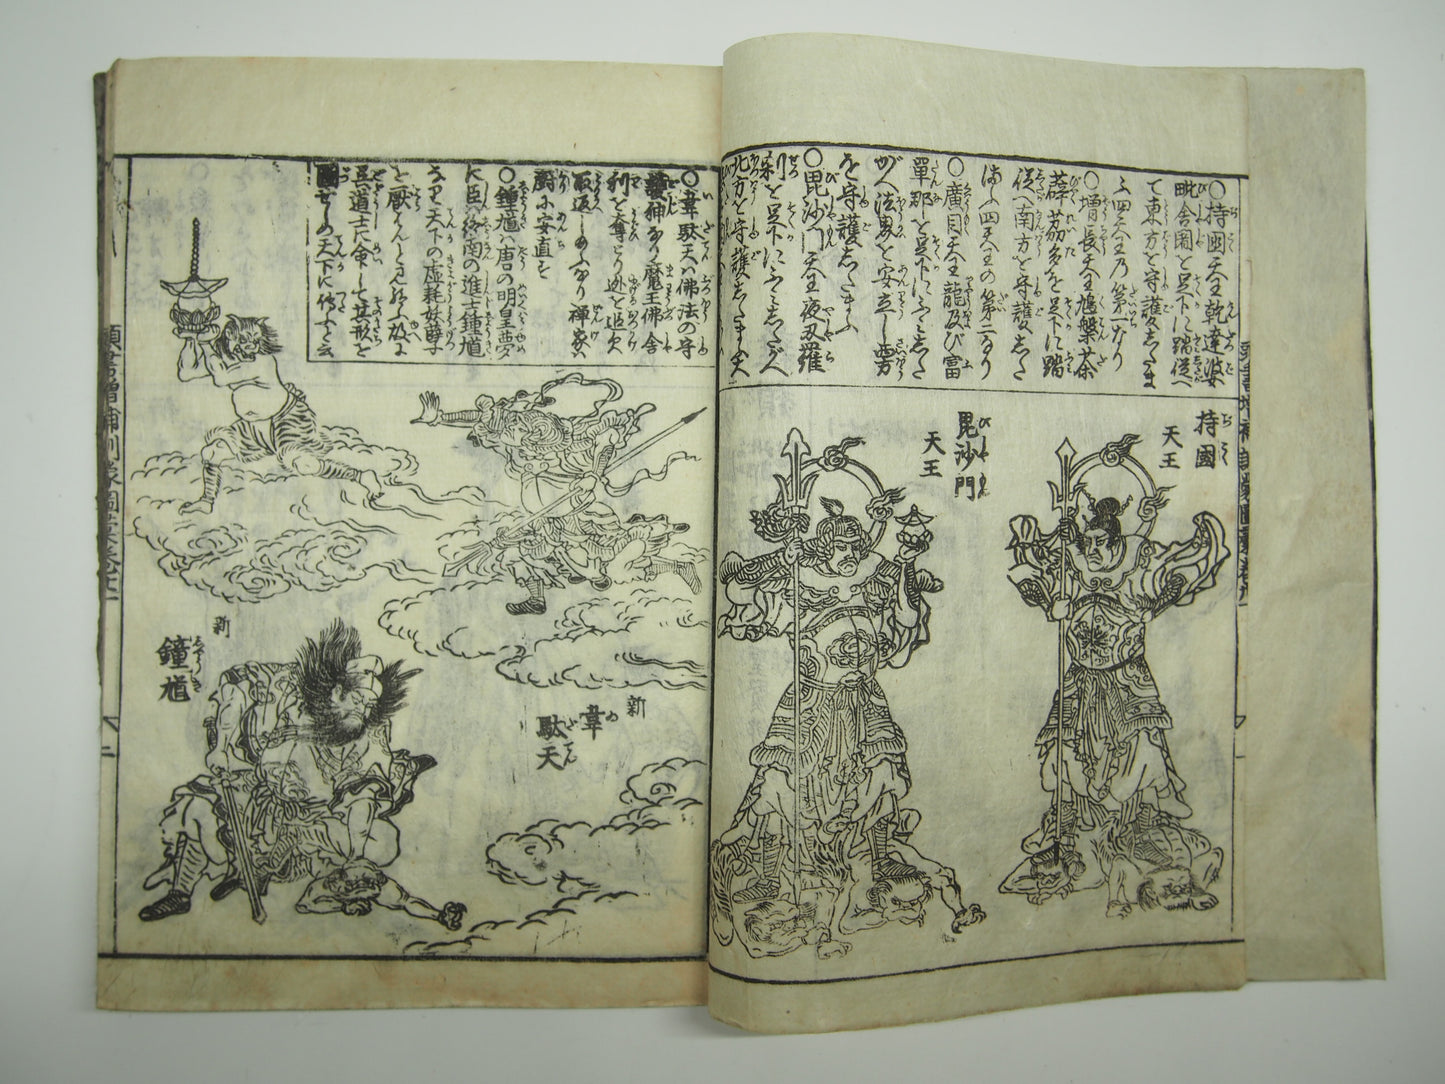 ○持國天王乾達婆
毗舎闍を足下に踏従へ
て東方を守護したま
ふ四天王乃第一なり
○増長天王鳩槃荼
薜荔多を足下に踏
従へ南方を守護した
まふ四天王の第二なり
○廣目天王龍及び富
單那を足下にふみした
がへ法界を安立し西方
を守護したまふ
○毘沙門天王夜叉羅
刹を足下にふみしたがへ
北方を守護したまふ
持國
天王
毘沙門
天王
○韋駄天ハ佛法の守
護神なり魔王佛舎
利を奪とり逃を追欠
取返しゐなり禅家ハ
廚に安置を
○鐘馗ハ唐の明皇夢
に臣ハ終南の進士鐘馗
なり天下の虚耗妖孽
を厭はんと
呉道士に命して其形を
圖せしめ天下に傳ふと云
新
韋
駄天
新
鐘馗
頭書増補訓蒙圖彙